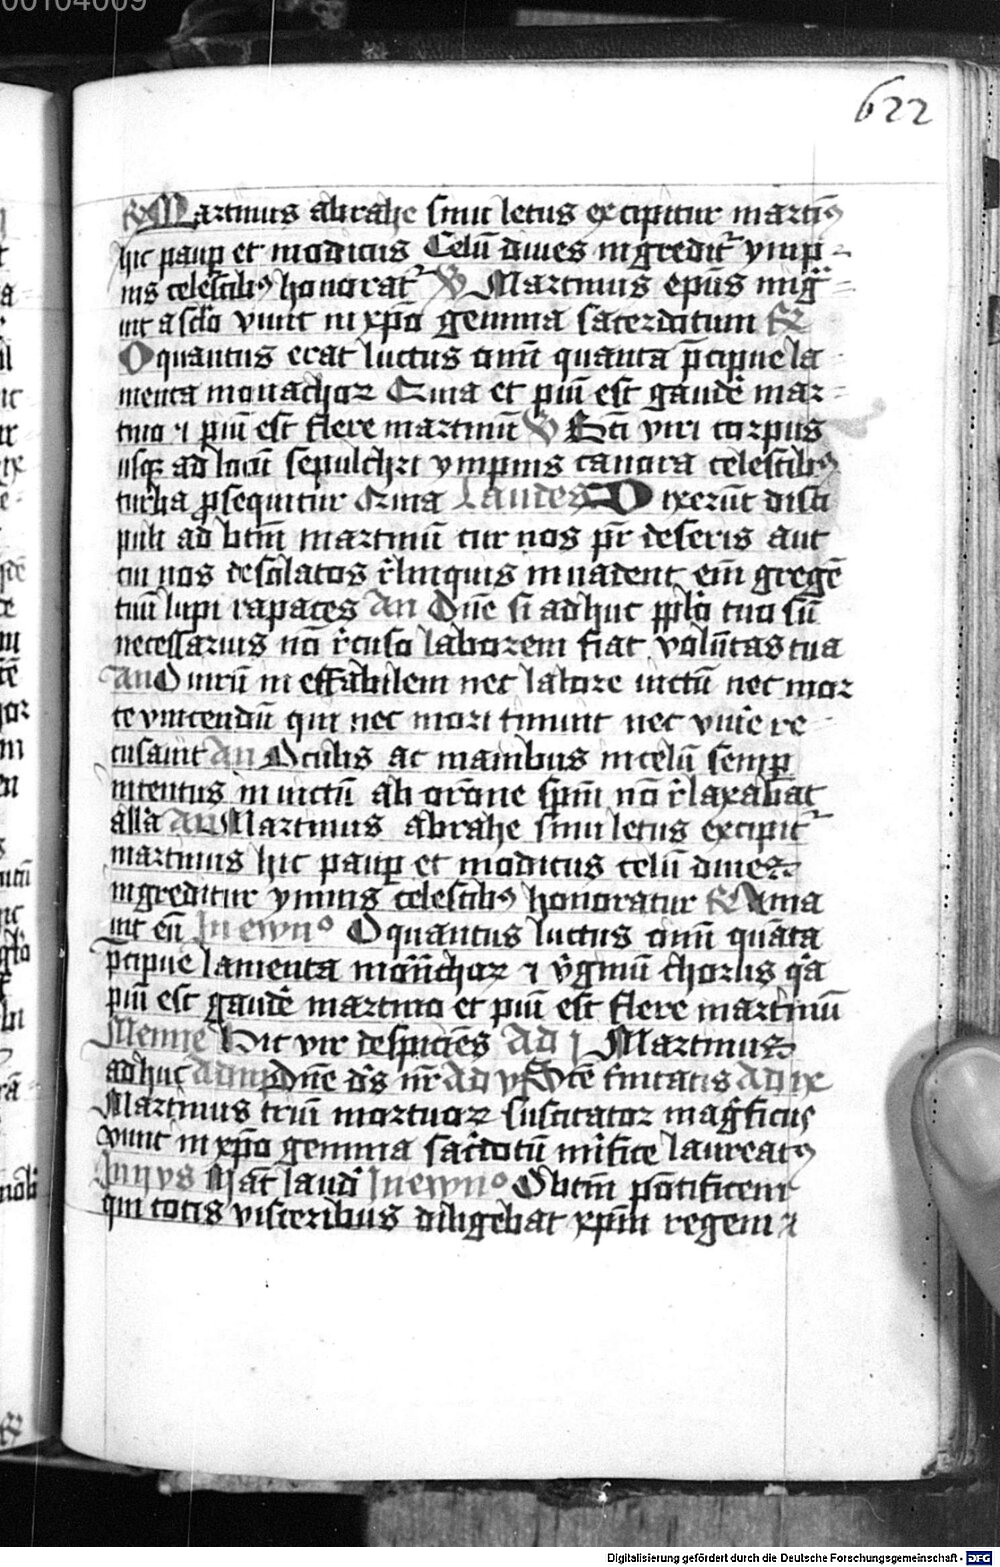 00104009
622
R Martinus abrahe sinu letus excipitur martin9
hic paup et modicus Celū dives ingredit ymp
nis celestib9 honorat V Martinus ep̄us mig
vit a sclo vivit in xp̄o gemma sacerdotum R
O quantus erat luctus om̄i quanta p̄cipue la
menta monachoꝝ Quia et piū est gaudē mar
tino ⁊ piū est flere martinū V Sc̄i viri corpus
usqꝫ ad locū sepulchri ympnis canora celestib9
turba prosequitur Quia Laudes Dixerūt disci
puli ad btm̄ martinū cur nos pr̄ deseris aut
cui nos desolatos rlinquis invadent em̄ gregē
tuū lupi rapaces An Dn̄e si adhuc pplo tuo sū
necessarius nō rcuso laborem fiat volūtas tua
An O virū in effabilem nec labore victū nec mor
te vincendū qui nec mori timuit nec vivē re
cusavit An Oculis ac manibus in celū semp
intentus invictū ab orōne spm̄ nō rlaxabat
alla An Martinus abrahe sinu letus excipit
martinus hic paup et modicus celū dives
ingreditur ymnis celestib9 honoratur R Ama
vit eū In ewno O quantus luctus om̄i quāta
p̄cipue lamenta mon̄choꝝ ⁊ vginū chorus qa
piū est gaudē martino et piū est flere martinū
Hic vir despiciēs Ad j Martinus
adhuc Ad iij Dn̄e ds nr̄ Ad vj Scē trinitatis Ad ix
Martinus triū mortuoꝝ suscitator magficus
vivit in xp̄o gemma sacdotū mifice laureat9
In ij vs Mat laud In ewno O btm̄ pōtificem
qui totis visceribus diligebat xpm̄ regem ⁊
Digitalisierung gefördert durch die Deutsche Forschungsgemeinschaft - DFG